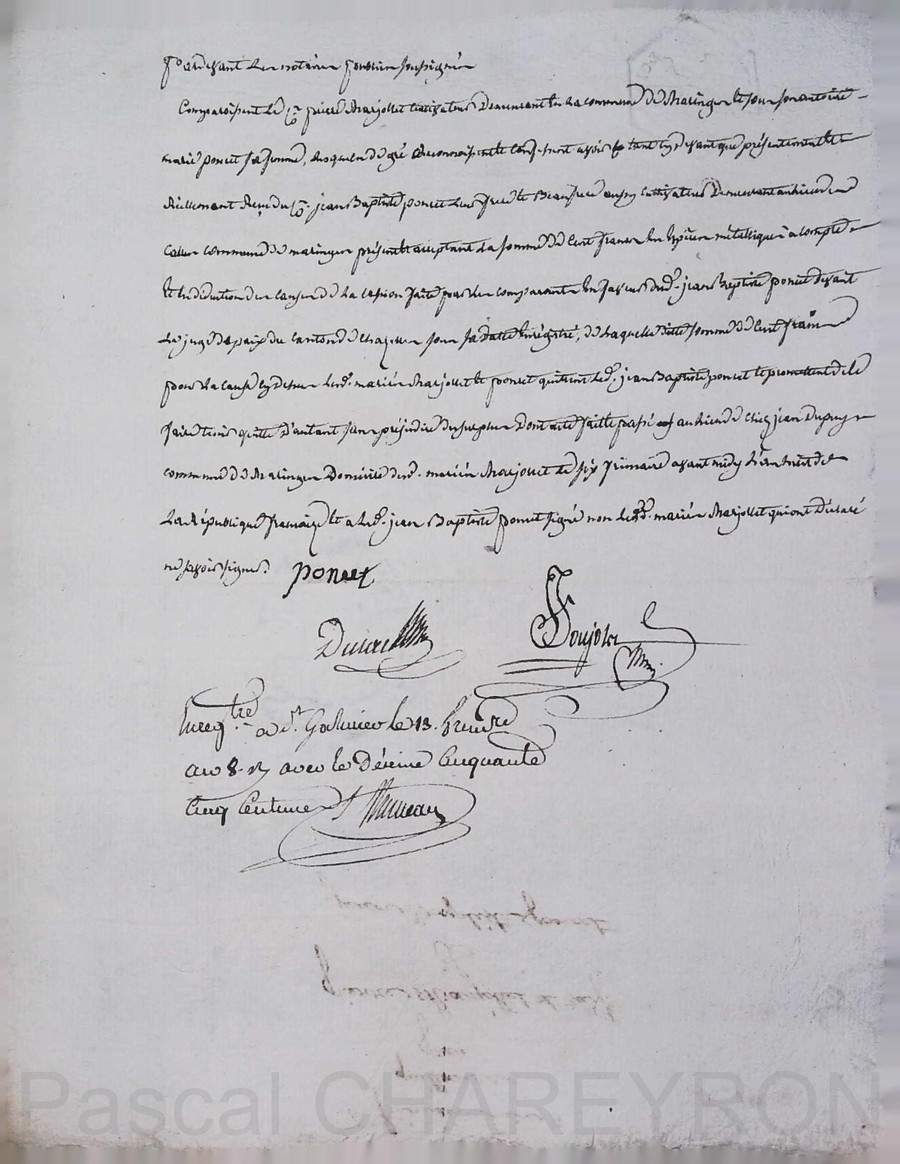 Pardevant les notaires publics soussignés
Comparoissent le Cen pierre Marjollet cultivateur demeurant en la commune de Maringes et sous son autorité
marie poncet sa femme, lesquels de gré reconnoissent et confessent avoir cy devant que présentement et
réellement reçu du Cen jean Baptiste poncet leur frere et Beaufrere aussy cultivateur demeurant au lieu de
commune de maringes présent et acceptant la somme de Cent francs en espèces métalliques à compte
et en déduction des causes de la cession faite par les comparants en faveur dudt. jean Baptiste poncet devant
le juge de paix du canton de chazelles sous sa datte enregistré, de laquelle ditte somme de Cent francs
pour la cause cy dessus lesdt. mariés Marjollet et poncet quittent ledt. jean Baptiste poncet et promettent de le
faire tenir quitte d'autant sans préjudice du surplus Dont acte fait et passé au lieu de chez jean Dupuy
commune de Maringes Domicile desdt. mariés Marjollet le six frimaire avant midy l'an huit de
La République francaise et a ledt. jean Baptiste poncet signé non lesdt. mariés Marjollet qui ont déclaré
ne savoir signer. poncet
Enregtré a st. Galmier le 13. frimre
an 8. Rç avec le Décime Cinquante
Cinq Centimes
Pascal CHAREYRON